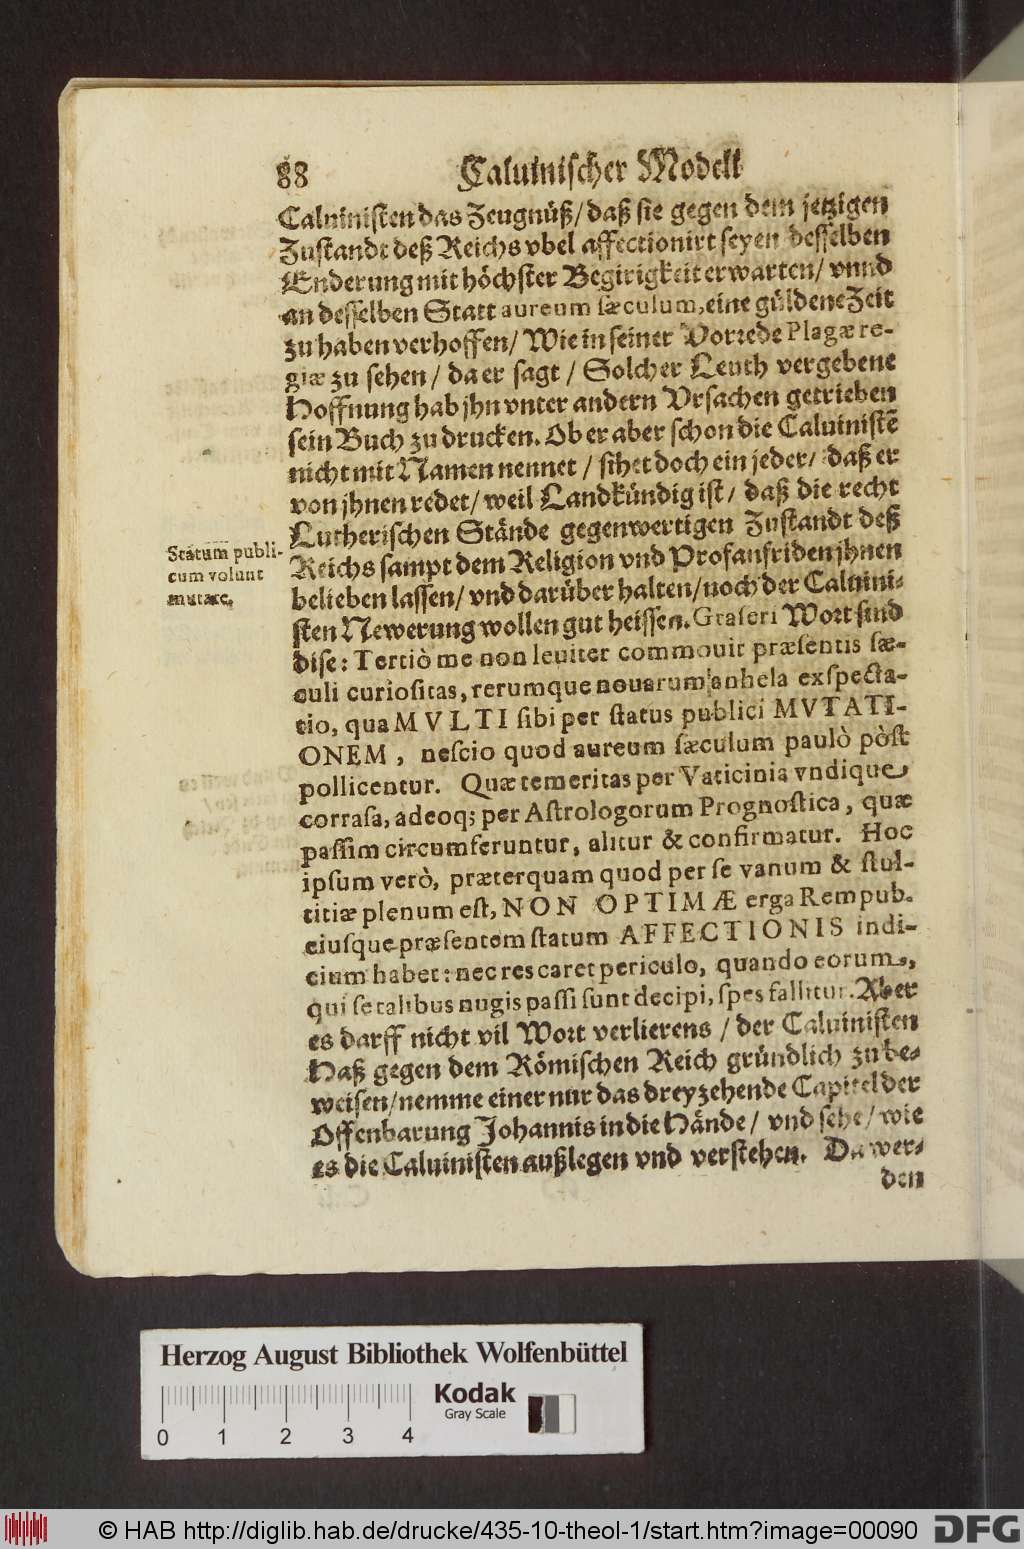 88 Caluinischer Modell
Caluinisten das Zeugnüß/ daß sie gegen dem jetzigen
Zustandt deß Reichs vbel affectionirt seyen desselben
Enderung mit höchster Begirigkeit erwarten/ vnnd
an desselben Statt aureum sæculum, eine güldene Zeit
zu haben verhoffen/ Wie in seiner Vorrede Plagæ re-
giæ zu sehen/ da er sagt/ Solcher Leuth vergebene
Hoffnung hab jhn vnter andern Vrsachen getrieben
sein Buch zu drucken. Ob er aber schon die Caluinistẽ
nicht mit Namen nennet/ sihet doch ein jeder/ daß er
von jhnen redet/ weil Landkündig ist/ daß die recht
Lutherischen Stände gegenwertigen Zustandt deß
Statum publi-
cum volunt
mutare.
Reichs sampt dem Religion vnd Profanfriden jhnen
belieben lassen/ vnd darüber halten/ noch der Caluini-
sten Newerung wollen gut heissen. Graseri Wort sind
dise: Tertiò me non leviter commouit præsentis sæ-
culi curiositas, rerumque nouarum anhela exspecta-
tio, qua MVLTI sibi per status publici MVTATI-
ONEM, nescio quod aureum sæculum paulò pòst
pollicentur. Quæ temeritas per Vaticinia vndique
corrasa, adeoq; per Astrologorum Prognostica, quæ
passim circumferuntur, alitur & confirmatur. Hoc
ipsum verò, præterquam quod per se vanum & stul-
titiæ plenum est, NON OPTIMÆ erga Rempub.
eiusque præsentem statum AFFECTIONIS indi-
cium habet: nec res caret periculo, quando eorum,
qui se talibus nugis passi sunt decipi, spes fallitur. Aber
es darff nicht vil Wort verlierens/ der Caluinisten
Haß gegen dem Römischen Reich gründlich zu be-
weisen/ nemme einer nur das dreyzehende Capitel der
Offenbarung Johannis in die Hände/ vnd sehe/ wie
es die Caluinisten außlegen vnd verstehen. Da wer-
den
Herzog August Bibliothek Wolfenbüttel
Kodak
Gray Scale
0 1 2 3 4
© HAB http://diglib.hab.de/drucke/435-10-theol-1/start.htm?image=00090
DFG